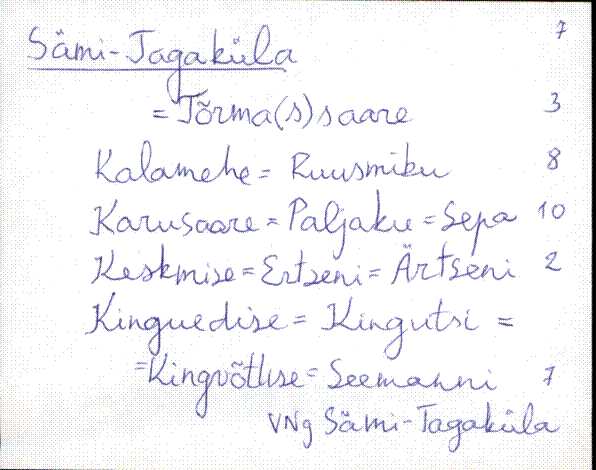 Sämi-Tagaküla 7
= Tõrma(s)saare 3
Kalamehe = Ruusmiku 8
Karusaare = Paljaku = Sepa 10
Keskmise = Ertseni = Ärtseni 2
Kinguedise = Kingutsi =
= Kingvõtluse = Seemanni 7
VNg Sämi-Tagaküla